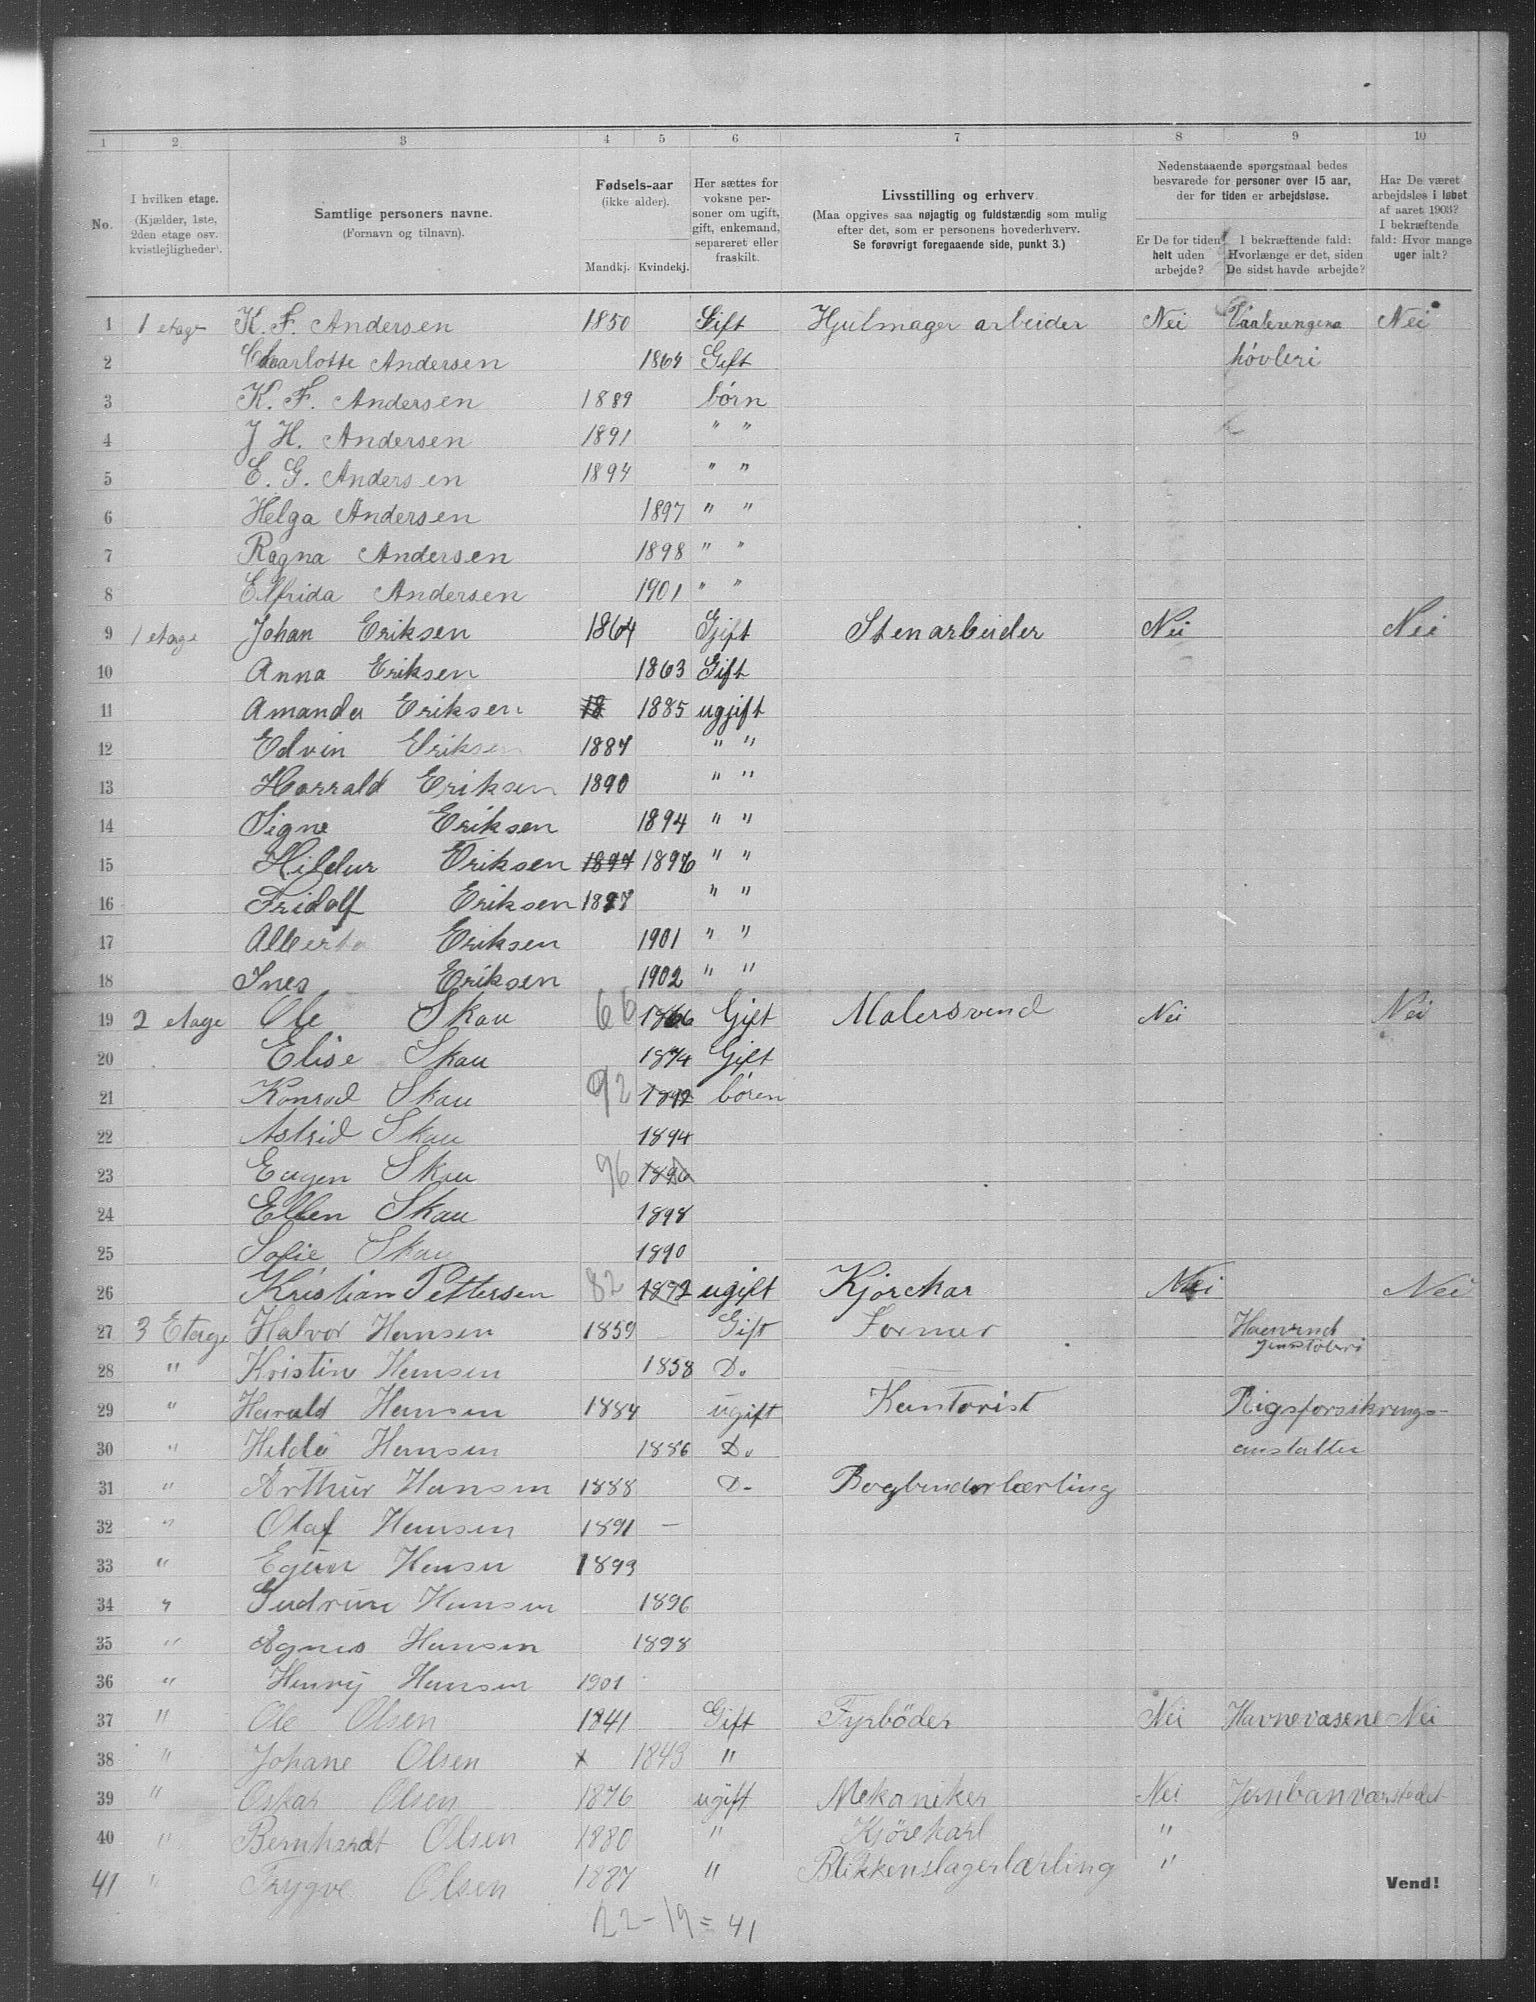 1 2 3 4 5 6 7 8 9 10
No.
I hvilken etage.
(Kjælder, 1ste,
2den etage osv.
kvistlejligheder).
Samtlige personers navne.
(Fornavn og tilnavn).
Fødsels-aar
(ikke alder).
Mandkj. Kvindekj.
Her sættes for
voksne per-
soner om ugift,
gift, enkemand,
separeret eller
fraskilt.
Livsstilling og erhverv.
(Maa opgives saa nøjagtig og fuldstændig som mulig
efter det, som er personens hovederhverv.
Se forøvrigt foregaaende side, punkt 3.)
Nedenstaaende spørgsmaal bedes
besvarede for personer over 15 aar,
der for tiden er arbejdsløse.
Er De for tiden
helt uden
arbejde?
I bekræftende fald:
Hvorlænge er det, siden
De sidst havde arbejde?
Har De været
arbejdsløs i løbet
af aaret 1903?
I bekræftende
fald: Hvor mange
uger ialt?
1 1 etage K. F. Andersen 1850 Gift Hjulmager arbeider Nei Vaalerengena Nei
2 Charlotte Andersen 1864 Gift høvleri
3 K. F. Andersen 1889 børn
4 J H. Andersen 1891 " "
5 E. G. Andersen 1894 " "
6 Helga Andersen 1897 " "
7 Ragna Andersen 1898 " "
8 Elfrida Andersen 1901 " "
9 1 etage Johan Eriksen 1864 Gjift Stenarbeider Nei Nei
10 Anna Eriksen 1863 Gift
11 Amanda Eriksen 18 1885 ugjift
12 Edvin Eriksen 1887 " "
13 Harrald Eriksen 1890 " "
14 Signe Eriksen 1894 " "
15 Hildur Eriksen 1897 1896 " "
16 Fridolf Eriksen 1897 " "
17 Alberta Eriksen 1901 " "
18 Ines Eriksen 1902 " "
19 2 etage Ole Skau 66 1866 Gift Malersvend Nei Nei
20 Elise Skau 1874 Gift
21 Konrad Skau 92 1892 børen
22 Astrid Skau 1894
23 Eugen Skau 96 1896
24 Ellen Skau 1898
25 Sofie Skau 1890
26 Kristian Pettersen 82 1872 ugift Kjørekar Nei Nei
27 3 Etage Halvor Hansen 1859 Gift Former
28 " Kristine Hansen 1858 Do
29 " Harald Hansen 1884 ugift Kontorist Rigsforsikrings-
30 " Hilda Hansen 1886 Do anstalten
31 " Arthur Hansen 1888 D- Bogbinderlærling
32 " Olaf Hansen 1891 —
33 " Hansen 1893
34 " Gudrun Hansen 1896
35 " Agnes Hansen 1898
36 " Henry Hansen 1901
37 " Ole Olsen 1841 Gift Fyrbøder Nei Havnevæsene Nei
38 " Johane Olsen x 1843 "
39 " Oskar Olsen 1876 ugift Mekaniker Nei Jernbanværstedet
40 " Bernhardt Olsen 1880 " Kjørekarl "
41 " Trygve Olsen 1887 " Blikkenslagerlærling "
Vend!
22-19=41